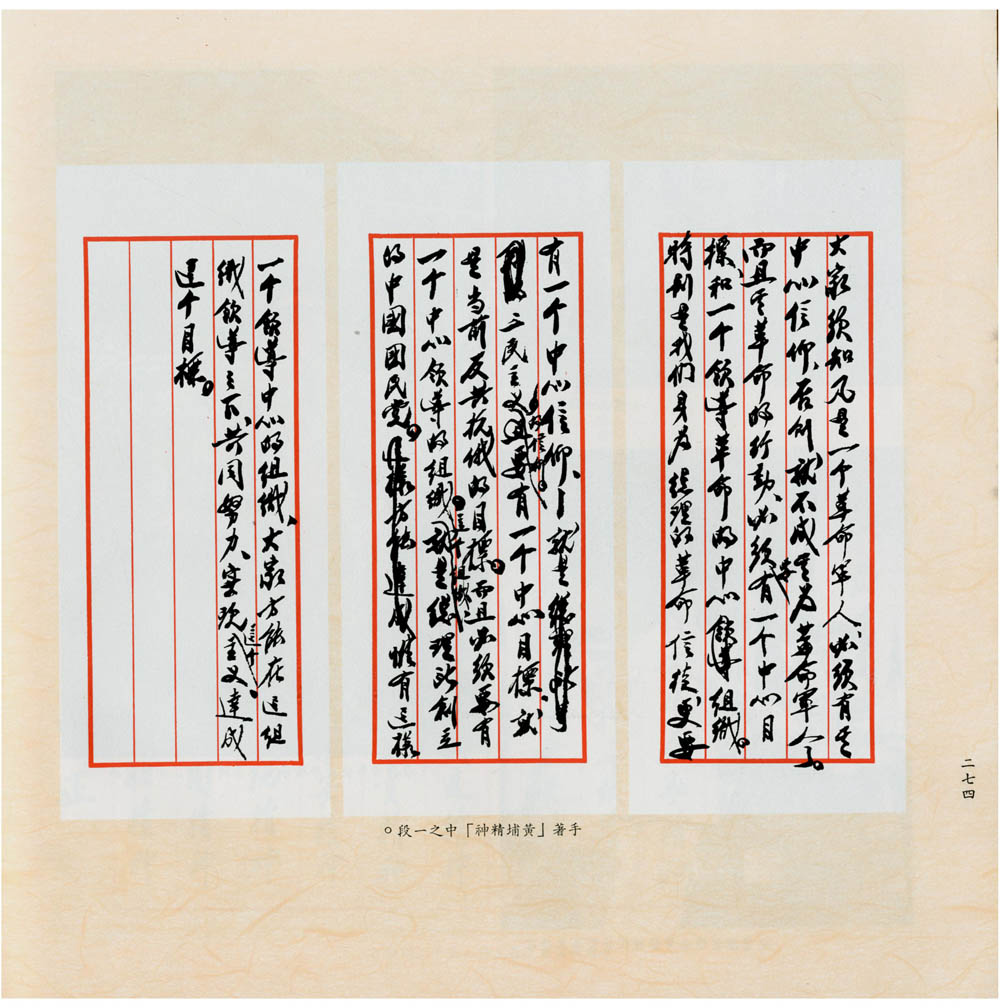 大家須知凡是一个革命军人、必須有其
中心信仰、否則就不成其為革命軍人了。
而且其革命的行動、必須要有一个中心目
標、和一个領導革命的中心領導組織。
特別是我們身為總理的革命信徒、更要
有一个中心信仰、——就是
三民主义的信仰。且要有一个中心目標、就
是当前反共抗俄的目標。而且必須要有
一个中心領導的組織。這个組織、就是總理所創立
的中國國民党。這樣方能達成惟有這樣
一个領導中心的組織、大家方能在這組
織領導之下、共同努力、实現這个主义、達成
這个目標。
手著「黃埔精神」中之一段。
二七四